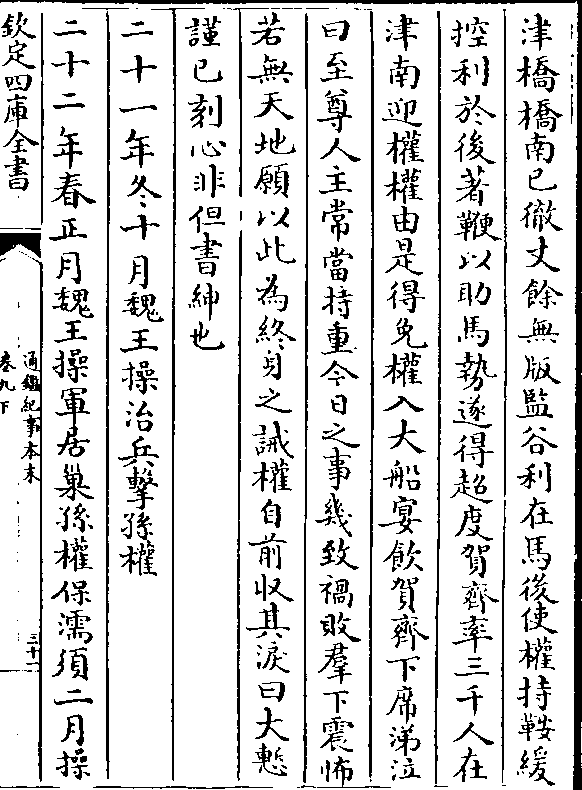 津橋橋南已徹丈餘無版監谷利在馬後使權持鞍緩
控利於後著鞭以助馬勢遂得超度賀齊率三千人在
津南迎權權由是得免權入大船宴飲賀齊下席涕泣
曰至尊人主常當持重今日之事幾致禍敗羣下震怖
若無天地願以此為終身之誡權自前收其淚曰大慙
謹已刻心非但書紳也
二十一年冬十月魏王操治兵擊孫權
二十二年春正月魏王操軍居巢孫權保濡須二月操
欽定四庫全書
通鑑紀事本末
卷九下
三十一